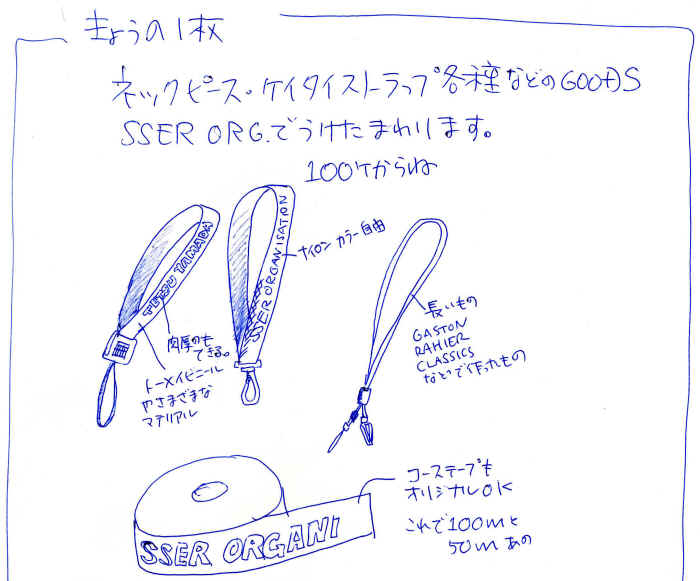 きょうの1枚
ネックピース・ケイタイストラップ各種などのGOODS
SSER ORG.でうけたまわります。
100ケからね
TETSU YAMADA
SSER ORGANISATION
ナイロン カラー自由
肉厚のも
できる。
トーメイビニール
やさまざまな
マテリアル
長いもの
GASTON
RAHIER
CLASSICS
などで作ったもの
コーステープも
オリジナルOK
これで100mと
50mあの
SSER ORGANI